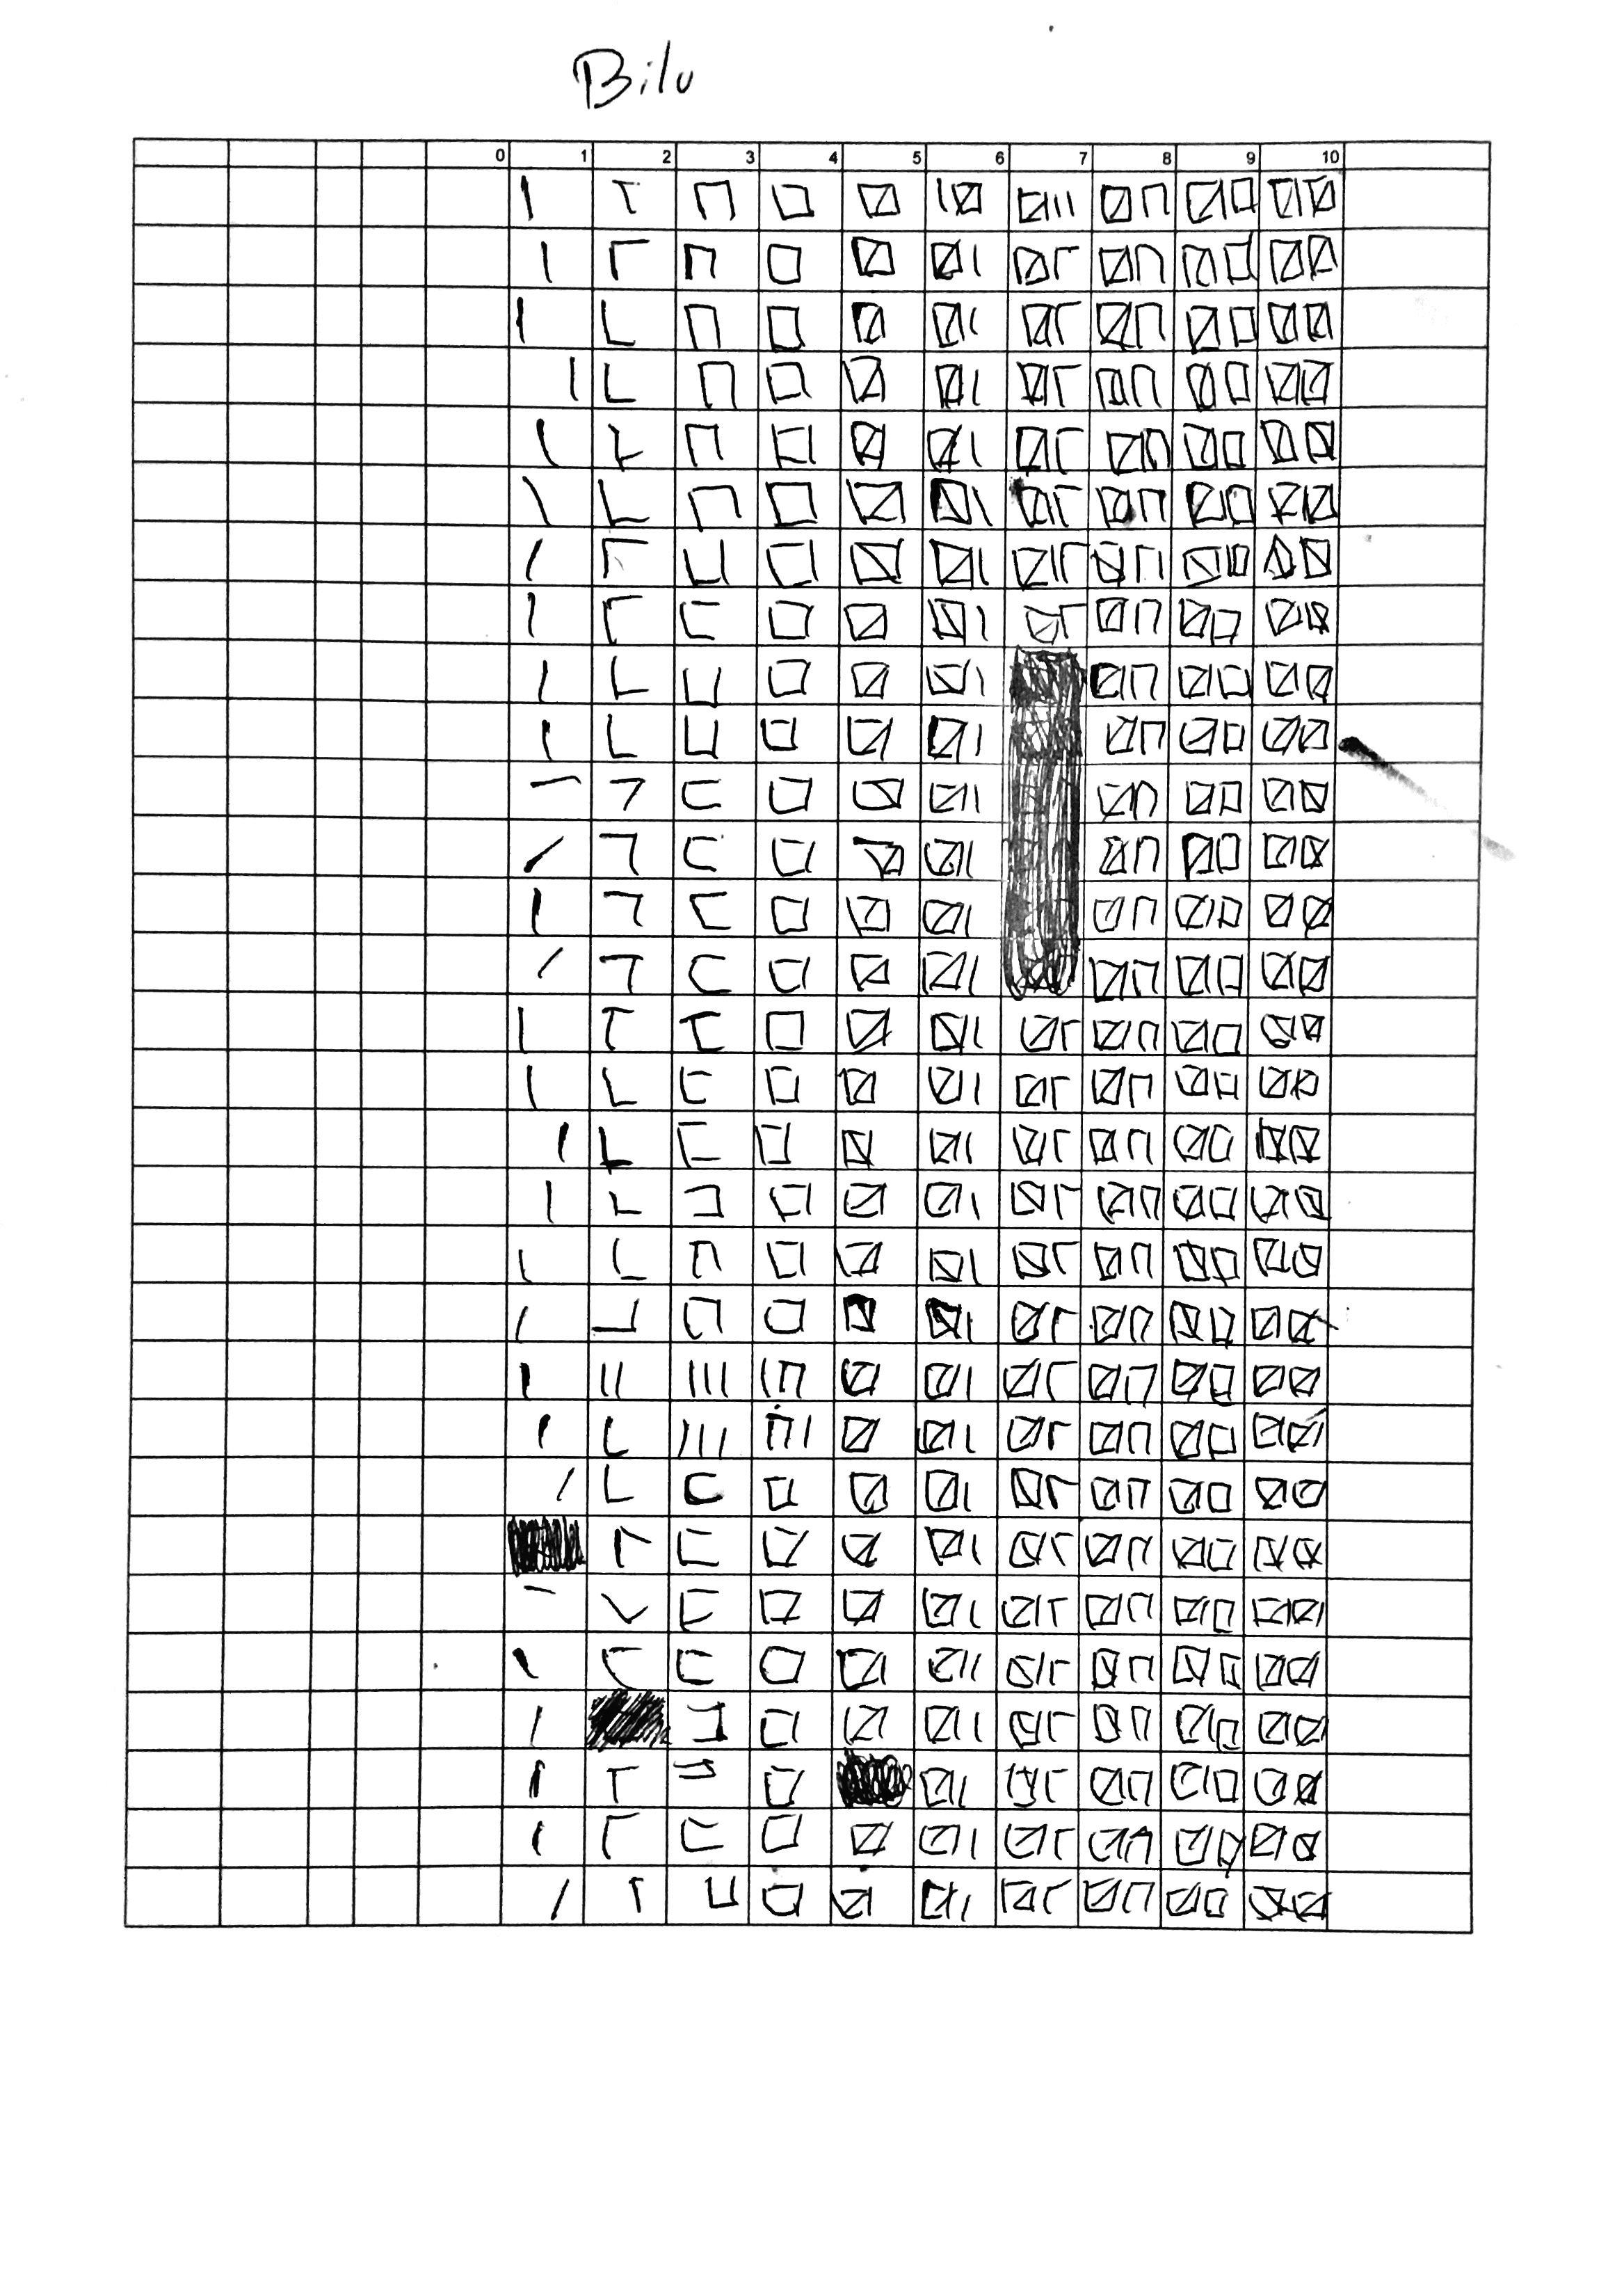 Bilu
0 1 2 3 4 5 6 7 8 9 10